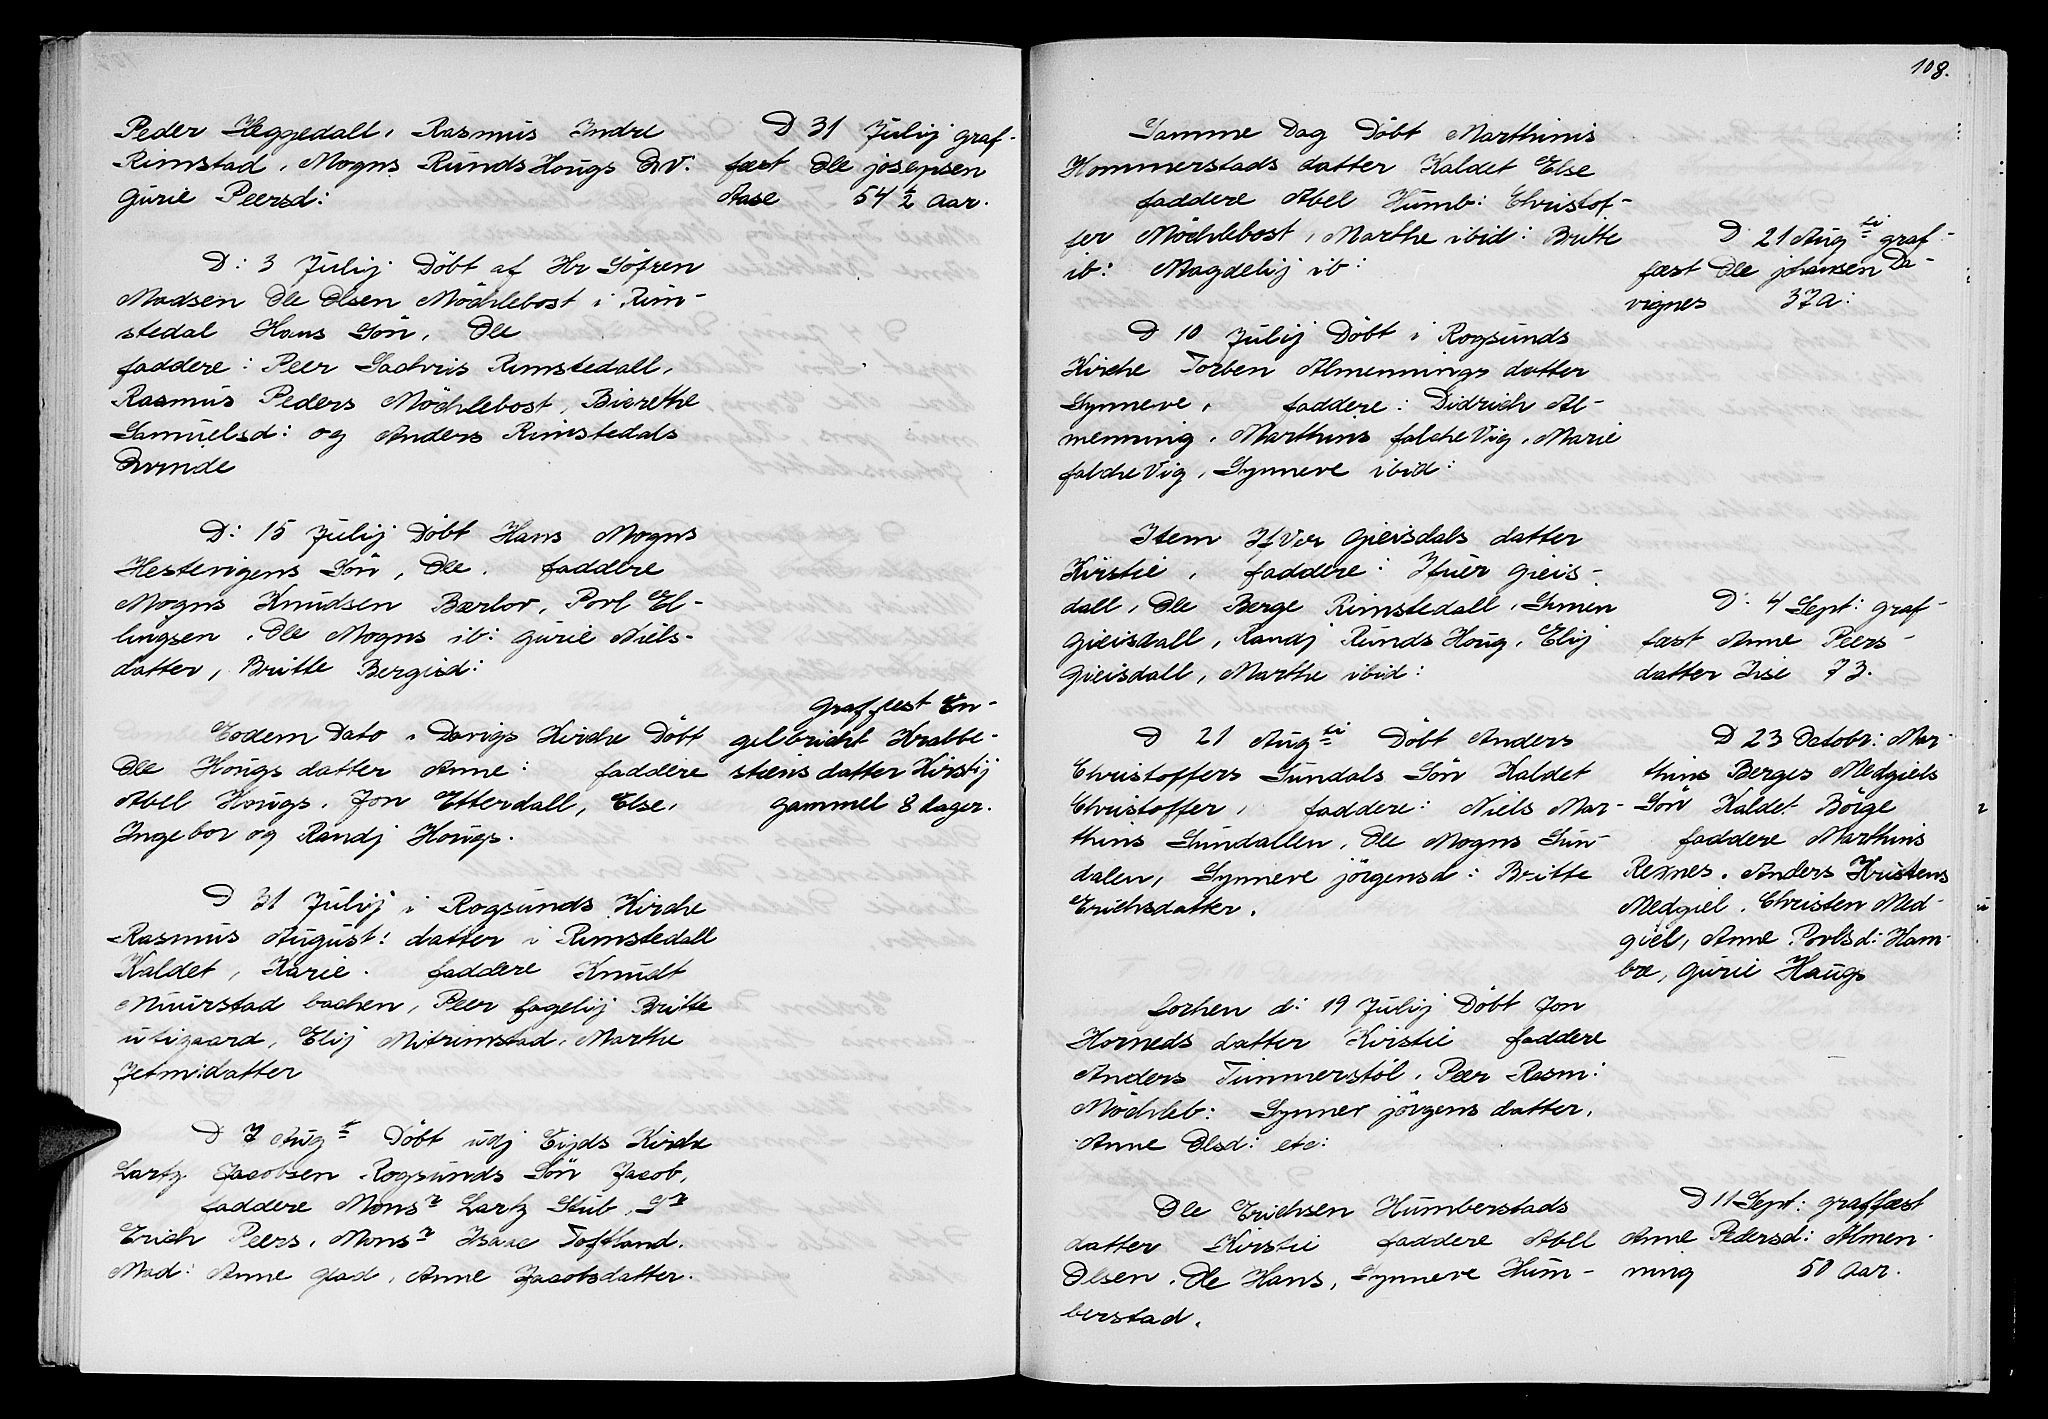 Peder Heggedall, Rasmus Indre
Rimstad, Mogns Runds Hougs Qv:
Gurie Peersd:
D: 3 Julij Döbt af Hr Söfren
Madsen Ole Olsen Möchlebost i Rim-
stedal Hans Sön, Ole
faddere: Peer Sachris Rimstedall,
Rasmus Peders Möchlebost, Bierethe
Samuelsd: og Anders Rimstedals
Qvinde
D: 15 Julij Döbt Hans Mogns
Hestevigens Sön, Ole. faddere
Mogns Knudsen Barlov, Povl El-
lingsen, Ole Mogns ib: Gurie Niels-
datter, Britte Bergisd:
Eodem Dato i Davigs Kirche Döbt
Ole Hougs datter Anne: faddere
Abel Hougs, Jon Etterdall, Else,
Ingebor og Randj Hougs.
D 31 Julij i Rogsunds Kirche
Rasmus August: datter i Rimstedall
Kaldet, Karie. faddere Knudt
Muurstad bachen, Peer fagelij Britte
utigaard, Elij Mitrimstad, Marthe
Jetmidatter
D 7 Augti Döbt udj Eijds Kirche
Lartz Jacobsen Rogsunds Sön Jacob,
faddere Monsr Lartz Stub, Sr
Erich Peers, Monsr Isaac Toftland.
Mad: Anne Glad, Anne Jacobsdatter.
D 31 Julij graf-
fæst Ole josepsen
Aase 54 1/2 Aar.
Graffæst En-
gelbricht Krabbe-
steens datter Kirstij
gammel 8 dager.
108.
Samme Dag Döbt Marthinis
Hommerstads datter Kaldet Else
faddere Abel Humb: Christof-
fer Möchlebost, Marthe ibid: Britte
ib: Magdelij ib:
D 10 Julij Döbt i Rogsunds
Kirche Torben Almennings datter
Synneve, faddere: Didrich Al-
menning, Marthins falcheVig, Marie
falcheVig, Synneve ibid:
Item IfVer Gieisdals datter
Kirstie, faddere: Ifuer Gieis-
dall, Ole Berge Rimstedall, Simen
Gieisdall, Randj Runds Houg, Elij
Gieisdall, Marthe ibid:
D 21 Augti Döbt Anders
Christoffers Sundals Sön Kaldet
Christoffer, faddere: Niels Mar-
thins Sundallen, Ole Mogns Sun-
dalen, Synneve jörgensd: Britte
Erichsdatter.
forhen d: 19 Julij Döbt Jon
Horneds datter Kirstie faddere
Anders Timmerstöl, Peer Rasm:
Möchleb: Synnev jörgens datter,
Anne Olsd: etc:
Ole Erichsen Humberstads
datter Kirstie faddere Abel
Olsen, Ole Hans, Synneve Hum-
berstad.
D 21 Augti graf-
fæst Ole johansen Da-
vignes 37 a:
D: 4 Sept: graf-
fæst Anne Peers-
datter Iise 73.
D 23 Octobr: Mar-
thins Berges Medgiels
Sön Kaldet Börge
faddere Marthins
Rexnes, Anders Kristens
Medgiel, Christen Med-
giel, Anne Povlsd: Ham-
bre, Gurie Haugs
D 11 Sept: graffæst
Anne Pedersd: Almen-
ning 50 Aar.